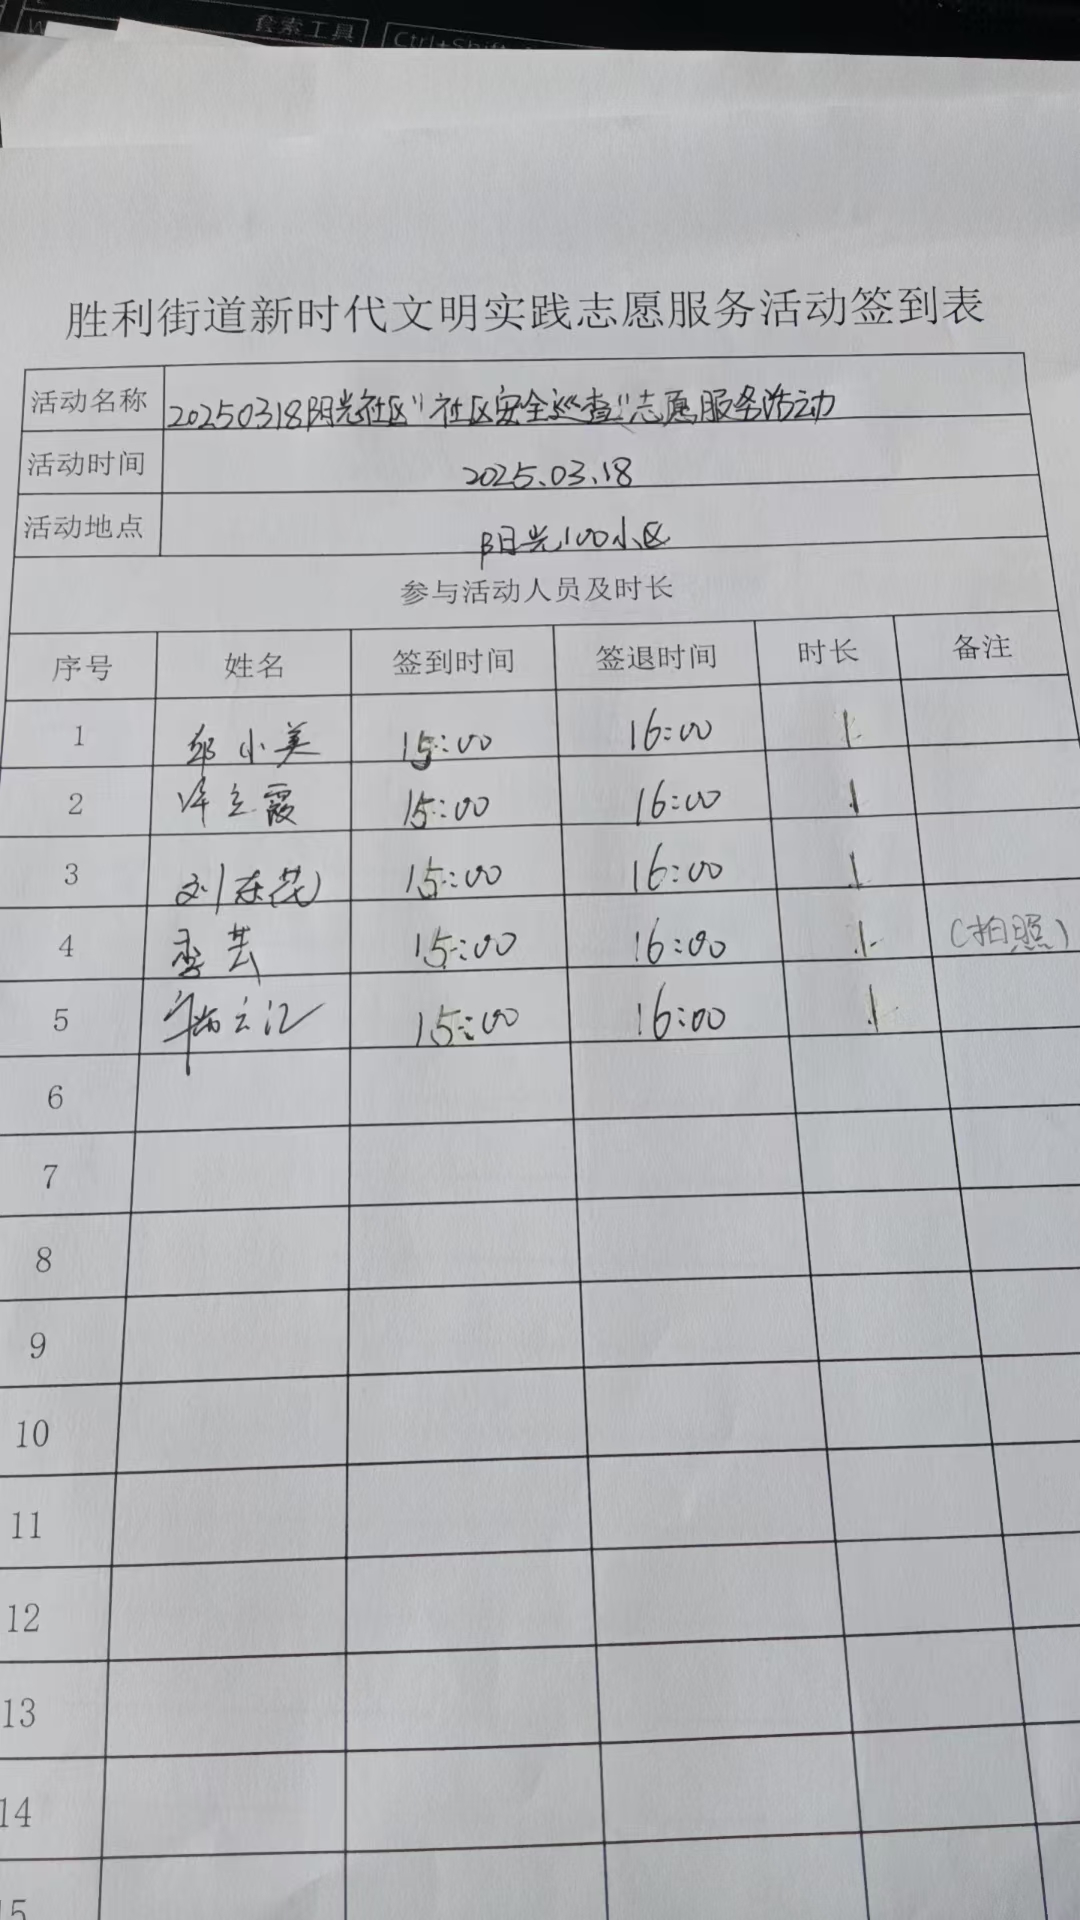 套索工具
Ctrl+Shift
胜利街道新时代文明实践志愿服务活动签到表
活动名称 20250318阳光社区"社区安全巡查"志愿服务活动
活动时间 2025.03.18
活动地点 阳光100小区
参与活动人员及时长
序号 姓名 签到时间 签退时间 时长 备注
1 邱小美 15:00 16:00 1
2 许立霞 15:00 16:00 1
3 刘东花 15:00 16:00 1
4 李芸 15:00 16:00 1 (拍照)
5 15:00 16:00 1
6
7
8
9
10
11
12
13
14
15